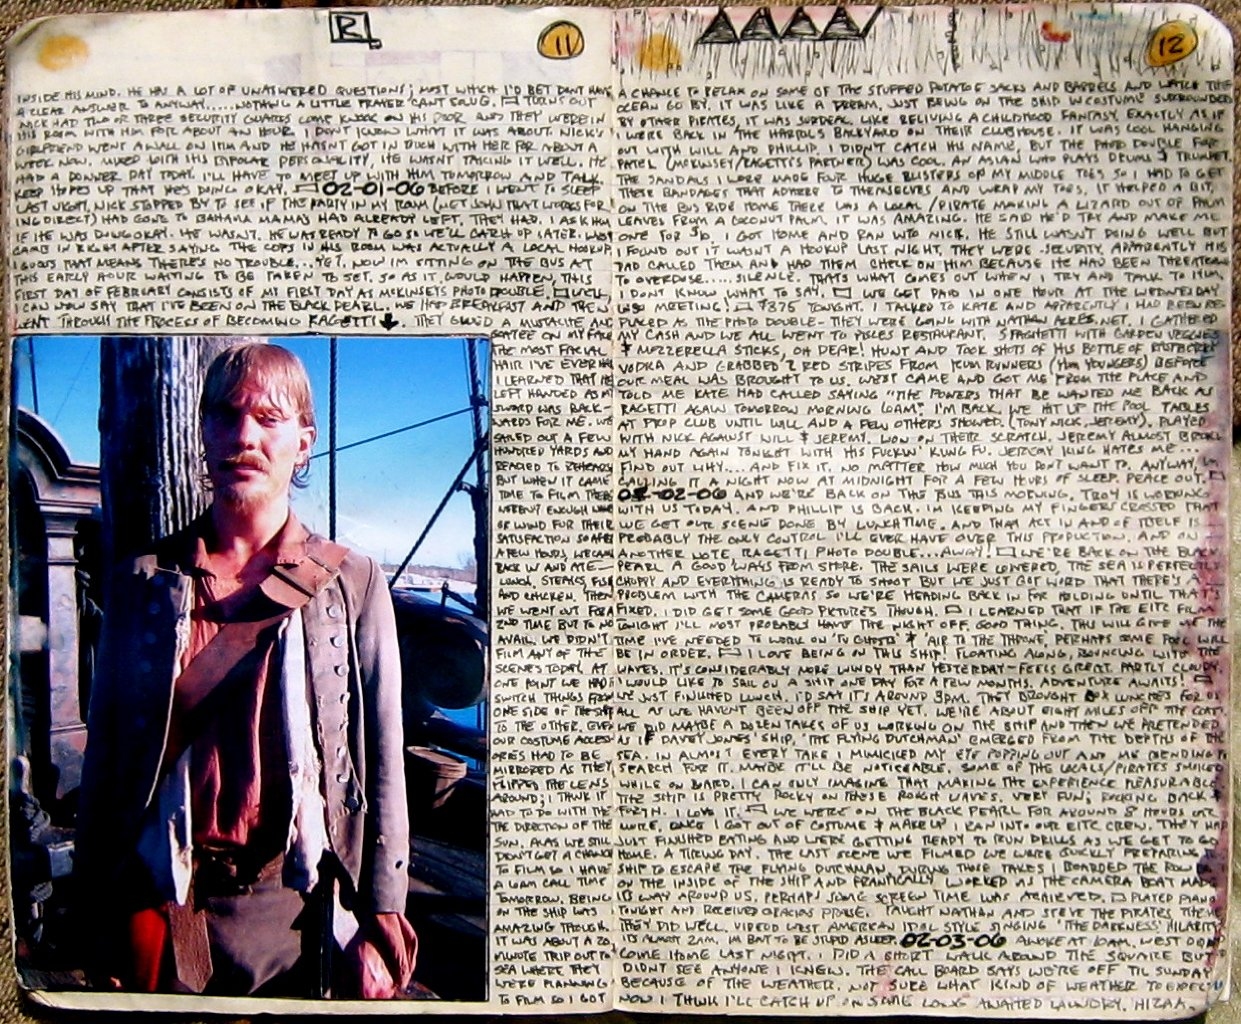 R
11
INSIDE HIS MIND. HE HAS A LOT OF UNANSWERED QUESTIONS; MOST WHICH I'D BET DON'T HAVE
A CLEAR ANSWER TO ANYWAY.....NOTHING A LITTLE PRAYER CAN'T SOLVE. TURNS OUT
NICK HAD TWO OR THREE SECURITY GUARDS COME KNOCK ON HIS DOOR AND THEY WERE IN
HIS ROOM WITH HIM FOR ABOUT AN HOUR. I DON'T KNOW WHAT IT WAS ABOUT. NICK'S
GIRLFRIEND WENT AWALL ON HIM AND HE HASN'T GOT IN TUCH WITH HER FOR ABOUT A
WEEK NOW. MIXED WITH HIS BIPOLAR PERSONALITY, HE WASN'T TAKING IT WELL. HE
HAD A DOWNER DAY TODAY. I'LL HAVE TO MEET UP WITH HIM TOMORROW AND TALK.
KEEP HOPES UP THAT HE'S DOING OKAY. 02-01-06 BEFORE I WENT TO SLEEP
LAST NIGHT, NICK STOPPED BY TO SEE IF THE PARTY IN MY ROOM (MET JOHN THAT WORKS FOR
ING DIRECT) HAD GONE TO BAHAMA MAMAS HAD ALREADY LEFT. THEY HAD. I ASK HIM
IF HE WAS DOING OKAY. HE WASN'T. HE WAS READY TO GO SO WE'LL CATCH UP LATER. WEST
CAME IN RIGHT AFTER SAYING THE COPS IN HIS ROOM WAS ACTUALLY A LOCAL HOOKUP
I GUESS THAT MEANS THERE'S NO TROUBLE...YET. NOW I'M SITTING ON THE BUS AT
THIS EARLY HOUR WAITING TO BE TAKEN TO SET. SO AS IT WOULD HAPPEN, THIS
FIRST DAY OF FEBRUARY CONSISTS OF MY FIRST DAY AS MCKINSEY'S PHOTO DOUBLE. WELL,
I CAN NOW SAY THAT I'VE BEEN ON THE BLACK PEARL. WE HAD BREAKFAST AND THEN
WENT THROUGH THE PROCESS OF BECOMING RAGETTI. THEY GLUED A MUSTACHE AND
GOATEE ON MY FACE
THE MOST FACIAL
HAIR I'VE EVER HAD
I LEARNED THAT HE
LEFT HANDED AS MY
SWORD WAS BACK-
WARDS FOR ME. WE
SAILED OUT A FEW
HUNDRED YARDS AND
READIED TO REHEARSE
BUT WHEN IT CAME
TIME TO FILM THERE
WEREN'T ENOUGH WAVES
OF WIND FOR THEIR
SATISFACTION SO AFTER
A FEW HOURS, WE CAME
BACK IN AND ATE
LUNCH. STEAKS, FISH
AND CHICKEN. THEN
WE WENT OUT FOR A
2ND TIME BUT TO NO
AVAIL. WE DIDN'T
FILM ANY OF THE
SCENES TODAY. AT
ONE POINT WE HAD
SWITCH THINGS FROM
ONE SIDE OF THE SHIP
TO THE OTHER. EVEN
OUR COSTUME ACCESS-
ORIES HAD TO BE
MIRRORED AS THEY
FLIPPED THE LENS
AROUND; I THINK IT
HAD TO DO WITH THE
THE DIRECTION OF THE
SUN. ALAS WE STILL
DIDN'T GET A CHANCE
TO FILM SO I HAVE
A 6AM CALL TIME
TOMORROW. BEING
ON THE SHIP WAS
AMAZING THOUGH.
IT WAS ABOUT A 20
MINUTE TRIP OUT TO
SEA WHERE THEY
WERE PLANNING
TO FILM SO I GOT
12
A CHANCE TO RELAX ON SOME OF THE STUFFED POTATOE SACKS AND BARRELS AND WATCH THE
OCEAN GO BY. IT WAS LIKE A DREAM, JUST BEING ON THE SHIP IN COSTUME SURROUNDED
BY OTHER PIRATES. IT WAS SURREAL. LIKE RELIVING A CHILDHOOD FANTASY EXACTLY AS IF
I WERE BACK IN THE HARROL'S BACKYARD ON THEIR CLUBHOUSE. IT WAS COOL HANGING
OUT WITH WILL AND PHILLIP. I DIDN'T CATCH HIS NAME, BUT THE PHOTO DOUBLE FOR
PATEL (MCKINSEY/RAGETTI'S PARTNER) WAS COOL. AN ASIAN WHO PLAYS DRUMS & TRUMPET.
THE SANDALS I WORE MADE FOUR HUGE BLISTERS OF MY MIDDLE TOES SO I HAD TO GET
THEIR BANDAGES THAT ADHERE TO THEMSELVES AND WRAP MY TOES. IT HELPED A BIT,
ON THE BUS RIDE HOME THERE WAS A LOCAL/PIRATE MAKING A LIZARD OUT OF PALM
LEAVES FROM A COCONUT PALM. IT WAS AMAZING. HE SAID HE'D TRY AND MAKE ME
ONE FOR $10. I GOT HOME AND RAN INTO NICK. HE STILL WASN'T DOING WELL BUT
I FOUND OUT IT WASN'T A HOOKUP LAST NIGHT, THEY WERE SECURITY. APPARENTLY HIS
DAD CALLED THEM AND HAD THEM CHECK ON HIM BECAUSE HE HAD BEEN THREATENING
TO OVERDOSE.....SILENCE. THAT'S WHAT COMES OUT WHEN I TRY AND TALK TO HIM,
I DON'T KNOW WHAT TO SAY. WE GET PAID IN ONE HOUR AT THE WEDNESDAY
MEETING! $375 TONIGHT. I TALKED TO KATE AND APPARENTLY I HAD BEEN RE-
PLACED AS THE PHOTO DOUBLE- THEY WERE GOING WITH NATHAN ACRES. I GATHERED
MY CASH AND WE ALL WENT TO PISCES RESTAURANT. SPAGHETTI WITH GARDEN VEGGIES
& MOZZERELLA STICKS, OH DEAR! HUNT AND TOOK SHOTS OF HIS BOTTLE OF RASPBERRY
VODKA AND GRABBED 2 RED STRIPES FROM RUM RUNNERS BEFORE
OUR MEAL WAS BROUGHT TO US. WEST CAME AND GOT ME FROM THE PLACE AND
TOLD ME KATE HAD CALLED SAYING "THE POWERS THAT BE WANTED ME BACK AS
RAGETTI AGAIN TOMORROW MORNING 6AM." I'M BACK. WE HIT UP THE POOL TABLES
AT PROP CLUB UNTIL WILL AND A FEW OTHERS SHOWED. (TONY, NICK, JEREMY). PLAYED
WITH NICK AGAINST WILL & JEREMY. WON ON THEIR SCRATCH. JEREMY ALMOST BROKE
MY HAND AGAIN TONIGHT WITH HIS FUCKIN' KUNG FU. JEREMY KING HATES ME...
FIND OUT WHY....AND FIX IT. NO MATTER HOW MUCH YOU DON'T WANT TO. ANYWAY, I'M
CALLING IT A NIGHT NOW AT MIDNIGHT FOR A FEW HOURS OF SLEEP. PEACE OUT.
02-02-06 AND WE'RE BACK ON THE BUS THIS MORNING. TROY IS WORKING
WITH US TODAY. AND PHILLIP IS BACK. I'M KEEPING MY FINGERS CROSSED THAT
WE GET OUR SCENE DONE BY LUNCHTIME. AND THAT ACT IN AND OF ITSELF IS
PROBABLY THE ONLY CONTROL I'LL EVER HAVE OVER THIS PRODUCTION. AND ON
ANOTHER NOTE, RAGETTI PHOTO DOUBLE...AWAY! WE'RE BACK ON THE BLACK
PEARL A GOOD WAYS FROM SHORE. THE SAILS WERE LOWERED, THE SEA IS PERFECTLY
CHOPPY AND EVERYTHING IS READY TO SHOOT BUT WE JUST GOT WORD THAT THERE'S A
PROBLEM WITH THE CAMERAS SO WE'RE HEADING BACK IN FOR HOLDING UNTIL THAT'S
FIXED. I DID GET SOME GOOD PICTURES THOUGH. I LEARNED THAT IF THE EITC FILM
TONIGHT I'LL MOST PROBABLY HAVE THE NIGHT OFF. GOOD THING. THIS WILL GIVE ME THE
TIME I'VE NEEDED TO WORK ON 'TV GHOSTS' & 'AIR TO THE THRONE'. PERHAPS SOME POOL WILL
BE IN ORDER. I LOVE BEING IN THIS SHIP! FLOATING ALONG, BOUNCING WITH THE
WAVES. IT'S CONSIDERABLY MORE WINDY THAN YESTERDAY-FEELS GREAT. PARTLY CLOUDY.
I WOULD LIKE TO SAIL ON A SHIP ONE DAY FOR A FEW MONTHS. ADVENTURE AWAITS!
WE JUST FINISHED LUNCH. I'D SAY IT'S AROUND 3PM. THEY BROUGHT BOX LUNCHES FOR US
ALL AS WE HAVEN'T BEEN OFF THE SHIP YET. WE'RE ABOUT EIGHT MILES OFF THE COAST
WE DID MAYBE A DOZEN TAKES OF US WORKING ON THE SHIP AND THEN WE PRETENDED
AS IF DAVEY JONES' SHIP, 'THE FLYING DUTCHMAN' EMERGED FROM THE DEPTHS OF THE
SEA. IN ALMOST EVERY TAKE I MIMICKED MY EYE POPPING OUT AND ME BENDING TO
SEARCH FOR IT. MAYBE IT'LL BE NOTICEABLE. SOME OF THE LOCALS/PIRATES SMILED
WHILE ON BOARD. I CAN ONLY IMAGINE THAT MAKING THE EXPERIENCE PLEASURABLE.
THE SHIP IS PRETTY ROCKY ON THESE ROUGH WAVES. VERY FUN; ROCKING BACK &
FORTH. I LOVE IT. WE WERE ON THE BLACK PEARL FOR AROUND 8 HOURS OR
MORE. ONCE I GOT OUT OF COSTUME & MAKEUP I RAN INTO OUR EITC CREW. THEY HAD
JUST FINISHED EATING AND WERE GETTING READY TO RUN DRILLS AS WE GET TO GO
HOME. A TIRING DAY. THE LAST SCENE WE FILMED WE WERE QUICKLY PREPARING THE
SHIP TO ESCAPE THE FLYING DUTCHMAN. DURING THOSE TAKES I BOARDED THE ROW
ON THE INSIDE OF THE SHIP AND FRANTICALLY WORKED AS THE CAMERA BOAT MADE
IT'S WAY AROUND US. PERHAPS SOME SCREEN TIME WAS ACHIEVED. PLAYED PIANO
TONIGHT AND RECEIVED GRACIOUS PRAISE. TAUGHT NATHAN AND STEVE THE PIRATES THEME
THEY DID WELL. VIDEOED WEST AMERICAN IDOL STYLE SINGING 'THE DARKNESS' HILARITY
IT'S ALMOST 2AM. I'M BOUT TO BE STUPID ASLEEP. 02-03-06 AWAKE AT 10AM. WEST DIDN'T
COME HOME LAST NIGHT. I DID A SHORT WALK AROUND THE SQUARE BUT
DIDN'T SEE ANYONE I KNEW. THE CALL BOARD SAYS WE'RE OFF TIL SUNDAY
BECAUSE OF THE WEATHER. NOT SURE WHAT KIND OF WEATHER TO EXPECT.
NOW I THINK I'LL CATCH UP ON SOME LONG AWAITED LAUNDRY. HIZAA.